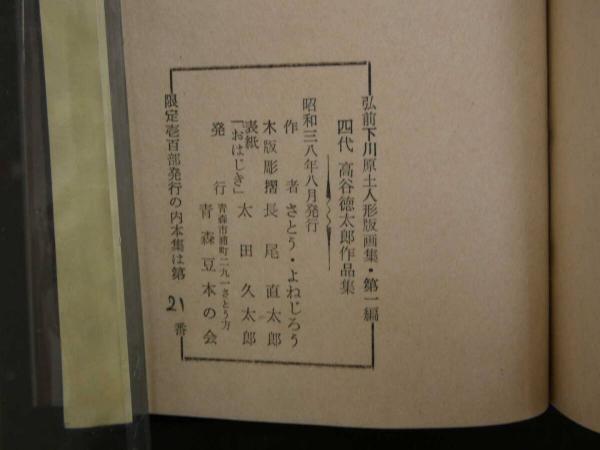 弘前下川原土人形版画集・第一編
四代 高谷徳太郎作品集
昭和三八年八月発行
作者 さとう・よねじろう
木版彫摺 長尾直太郎
表紙「おはじき」 太田久太郎
発行 青森市浦町二九一さとう方
青森豆本の会
限定壱百部発行の内本集は第21番